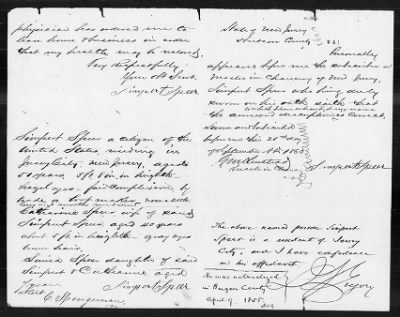 physician has ordered me to
leave home & business in order
that my health may be restored.
Very Respectfully
Your Obt Servt.
Simpert Speer
Simpert Speer a citizen of the
United States residing in
Jersey City, New Jersey, aged
years, 5ft 8 in in height
hazel eyes - fair complexion by
trade a
Catharine Speer wife of said
Simpert Speer aged 20 years
about 5 ft in height gray eyes
brown hair.
Louisa Speer daughter of said
Simpert & Catharine aged
years
Simpert Speer
State of New Jersey
Hudson County SS:
Personally
appears before me the subscriber a
Master in Chancery of New Jersey,
Simpert Speer who being duly
sworn on his oath saith that
the annexed description is correct.
Sworn and subscribed
before me this day
of September A.D. 1865
Simpert Speer
The above named person Simpert
Speer is a resident of Jersey
City, and I have confidence
in his affidavit
Gregory
He was naturalized
in Bergen County
April 9. 1855.